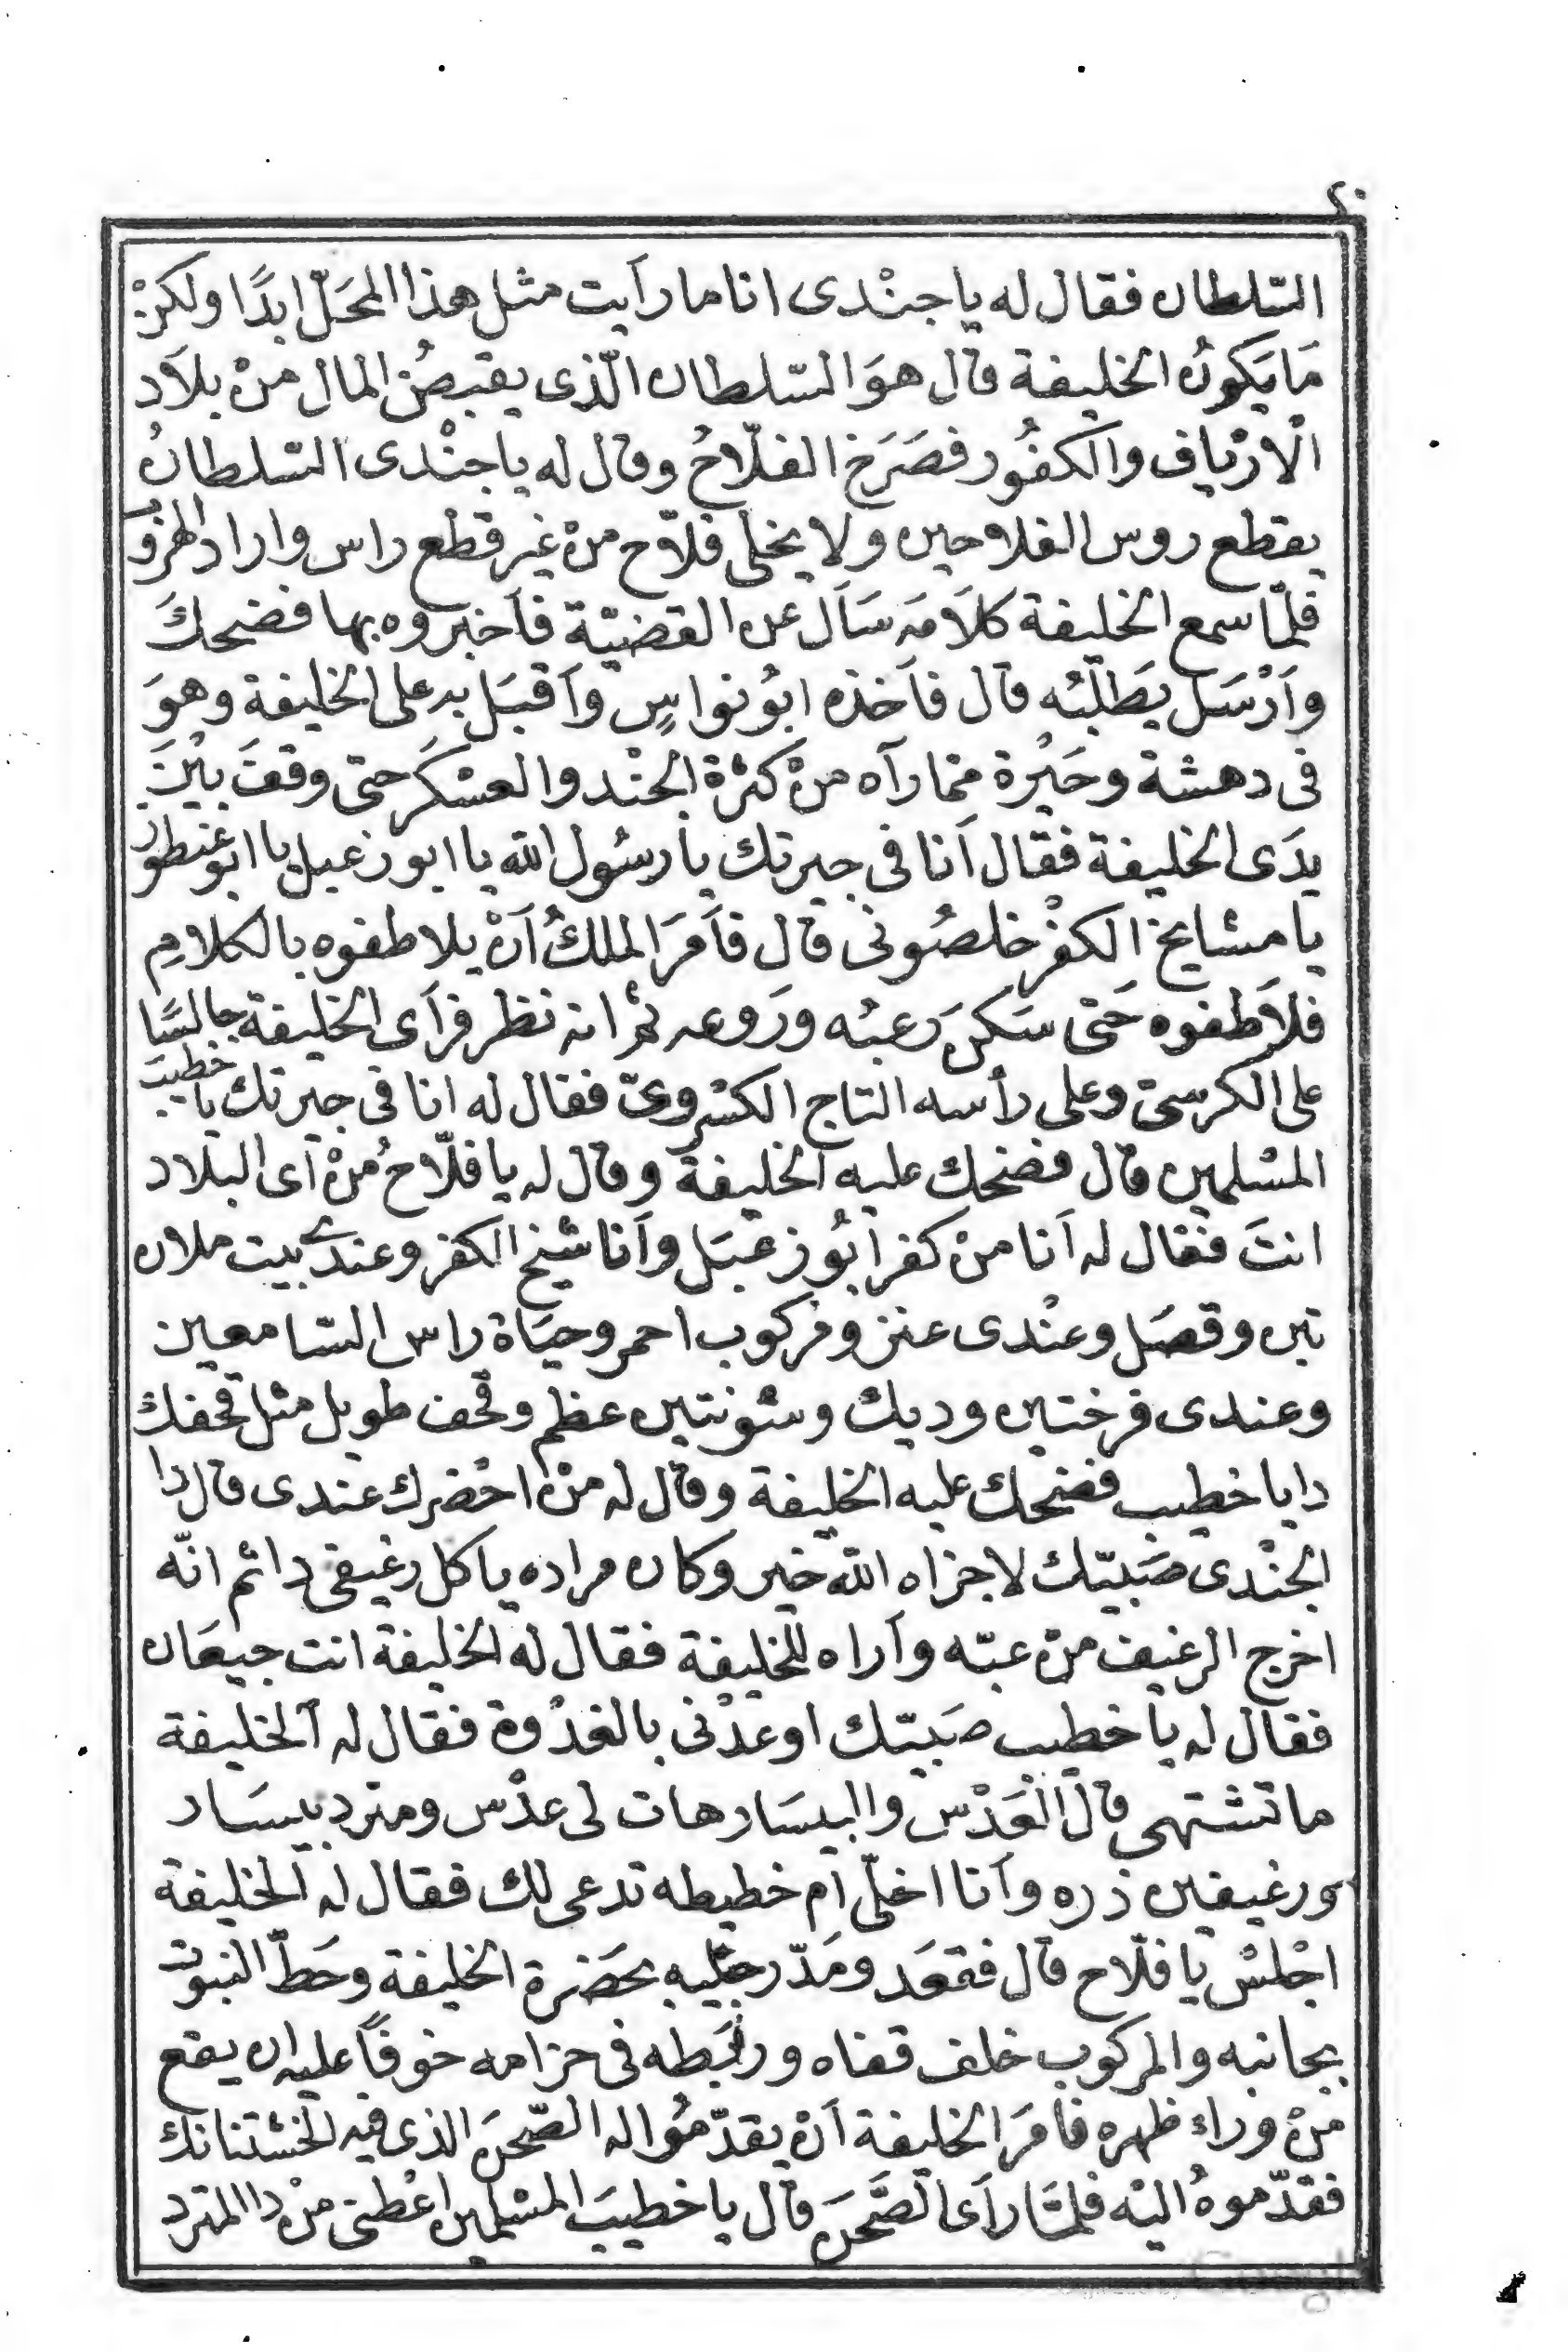 ٢٠
السّلطان فقال له يا جنْدى انا ما رأيت مثل هذا المحَلّ ابدًا ولكنْ
مَا يَكونُ الخليفة قال هوَ السّلطان الّذى يقبضُ المال منْ بلاَد
الْارْياف والكفُور فصَرَخ الفلّاحُ وقال له يا جنْدى السّلطانُ
يقطع روس الفلاحين ولا يخلى فلاّح منْ غير قطْع راس واراد الهرُوب
فلمّا سمع الخليفة كلاَمَه سَأل عن القضيّة فأخبروه بها فضحكَ
وأرْسَل يَطلبُه قال فأخذه ابُو نواسٍ وأقبَل به على الخليفة وهوَ
فى دهشة وحَيْرة ممّا رآه منْ كثْرة الجنْد والعسْكَر حتى وقفَ بيْنَ
يدَى الخليفة فقال أنا فى جيرتك يا رسُول الله يا ابو زعبل يا ابو عنطوز
يا مشايخ الكفْر خلصُونى قال فأمَرَ الملكُ أنْ يلاطفوه بالكلامِ
فلاَطفوه حَتى سَكنَ رَعبُه ورَوعه ثمّ انه نظر فرأى الخليفة جالسًا
على الكرسىّ وعلى رأسه التاج الكسْروىّ فقال له انا فى جيرتك يا خطيبَ
المسْلمين قال فضحك عليه الخليفة وقال له يا فلّاحُ منْ أى البلاد
انتَ فقال له أنا منْ كفر أبُو زعْبَل وأنا شيْخ الكفر وعندى بيت ملان
تبن وقصَل وعنْدى عنز ومركوب احمر وحيَاة راس السّامعين
وعندى فرختين وديك وشونتين عظم وقحف طويل مثل قحفك
دا يا خطيب فضحك عليه الخليفة وقال له منْ احْضرك عندى قال دا
الجنْدى صَبيّك لا جزاه الله خير وكان مراده ياكل رغيفى دا ثم انّه
اخرج الرغيف منْ عبّه وأراه للخليفة فقال له الخليفة انت جيعَان
فقال له يا خطيب صَبيّك اوعدْنى بالغدْوة فقال له الخليفة
ما تشتهى قال الْعَدْس والبيسَار هات لى عدْس ومترد بيسَار
ورغيفين ذره وأنا اخلّى أم خطيطه تدعى لك فقال له الخليفة
اجْلسْ يا فلّاح قال فقعَد ومَدّ رجليه بحَضرة الخليفة وحَطّ النبوت
بجانبه والمركوب خلف قفاه وربَطه فى حزامه خوفًا عليه ان يقع
منْ وراء ظهره فأمَرَ الخليفة أنْ يقدّمُوا له الصّحنَ الذى فيه الخشْتنانك
فقدّموهُ اليْه فلمَّا رأى الصَّحنَ قال يا خطيبَ المسْلمين اعْطنى منْ دا المترد